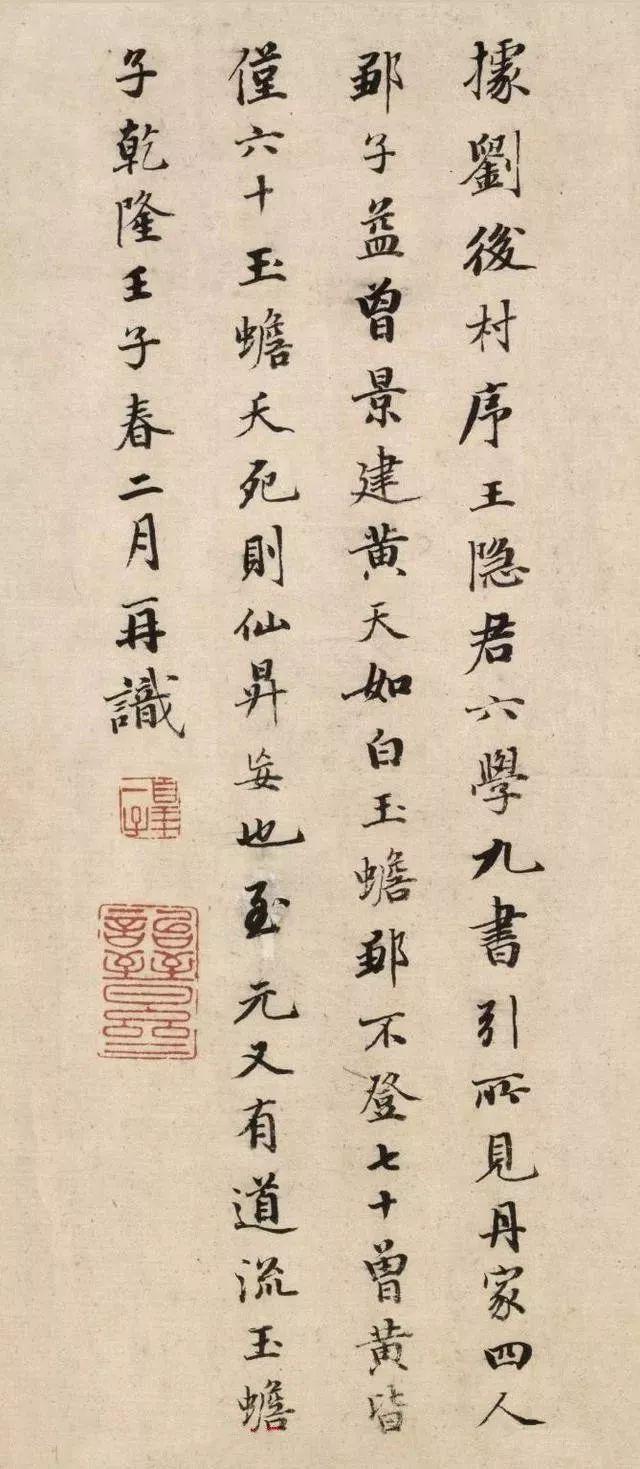 據劉後村序王隐君六學九書引所見丹家四人
鄒子益曾景建黄天如白玉蟾鄒不登七十曾黄皆
僅六十玉蟾夭死則仙昇妄也至元又有道流玉蟾
子乾隆壬子春二月再識